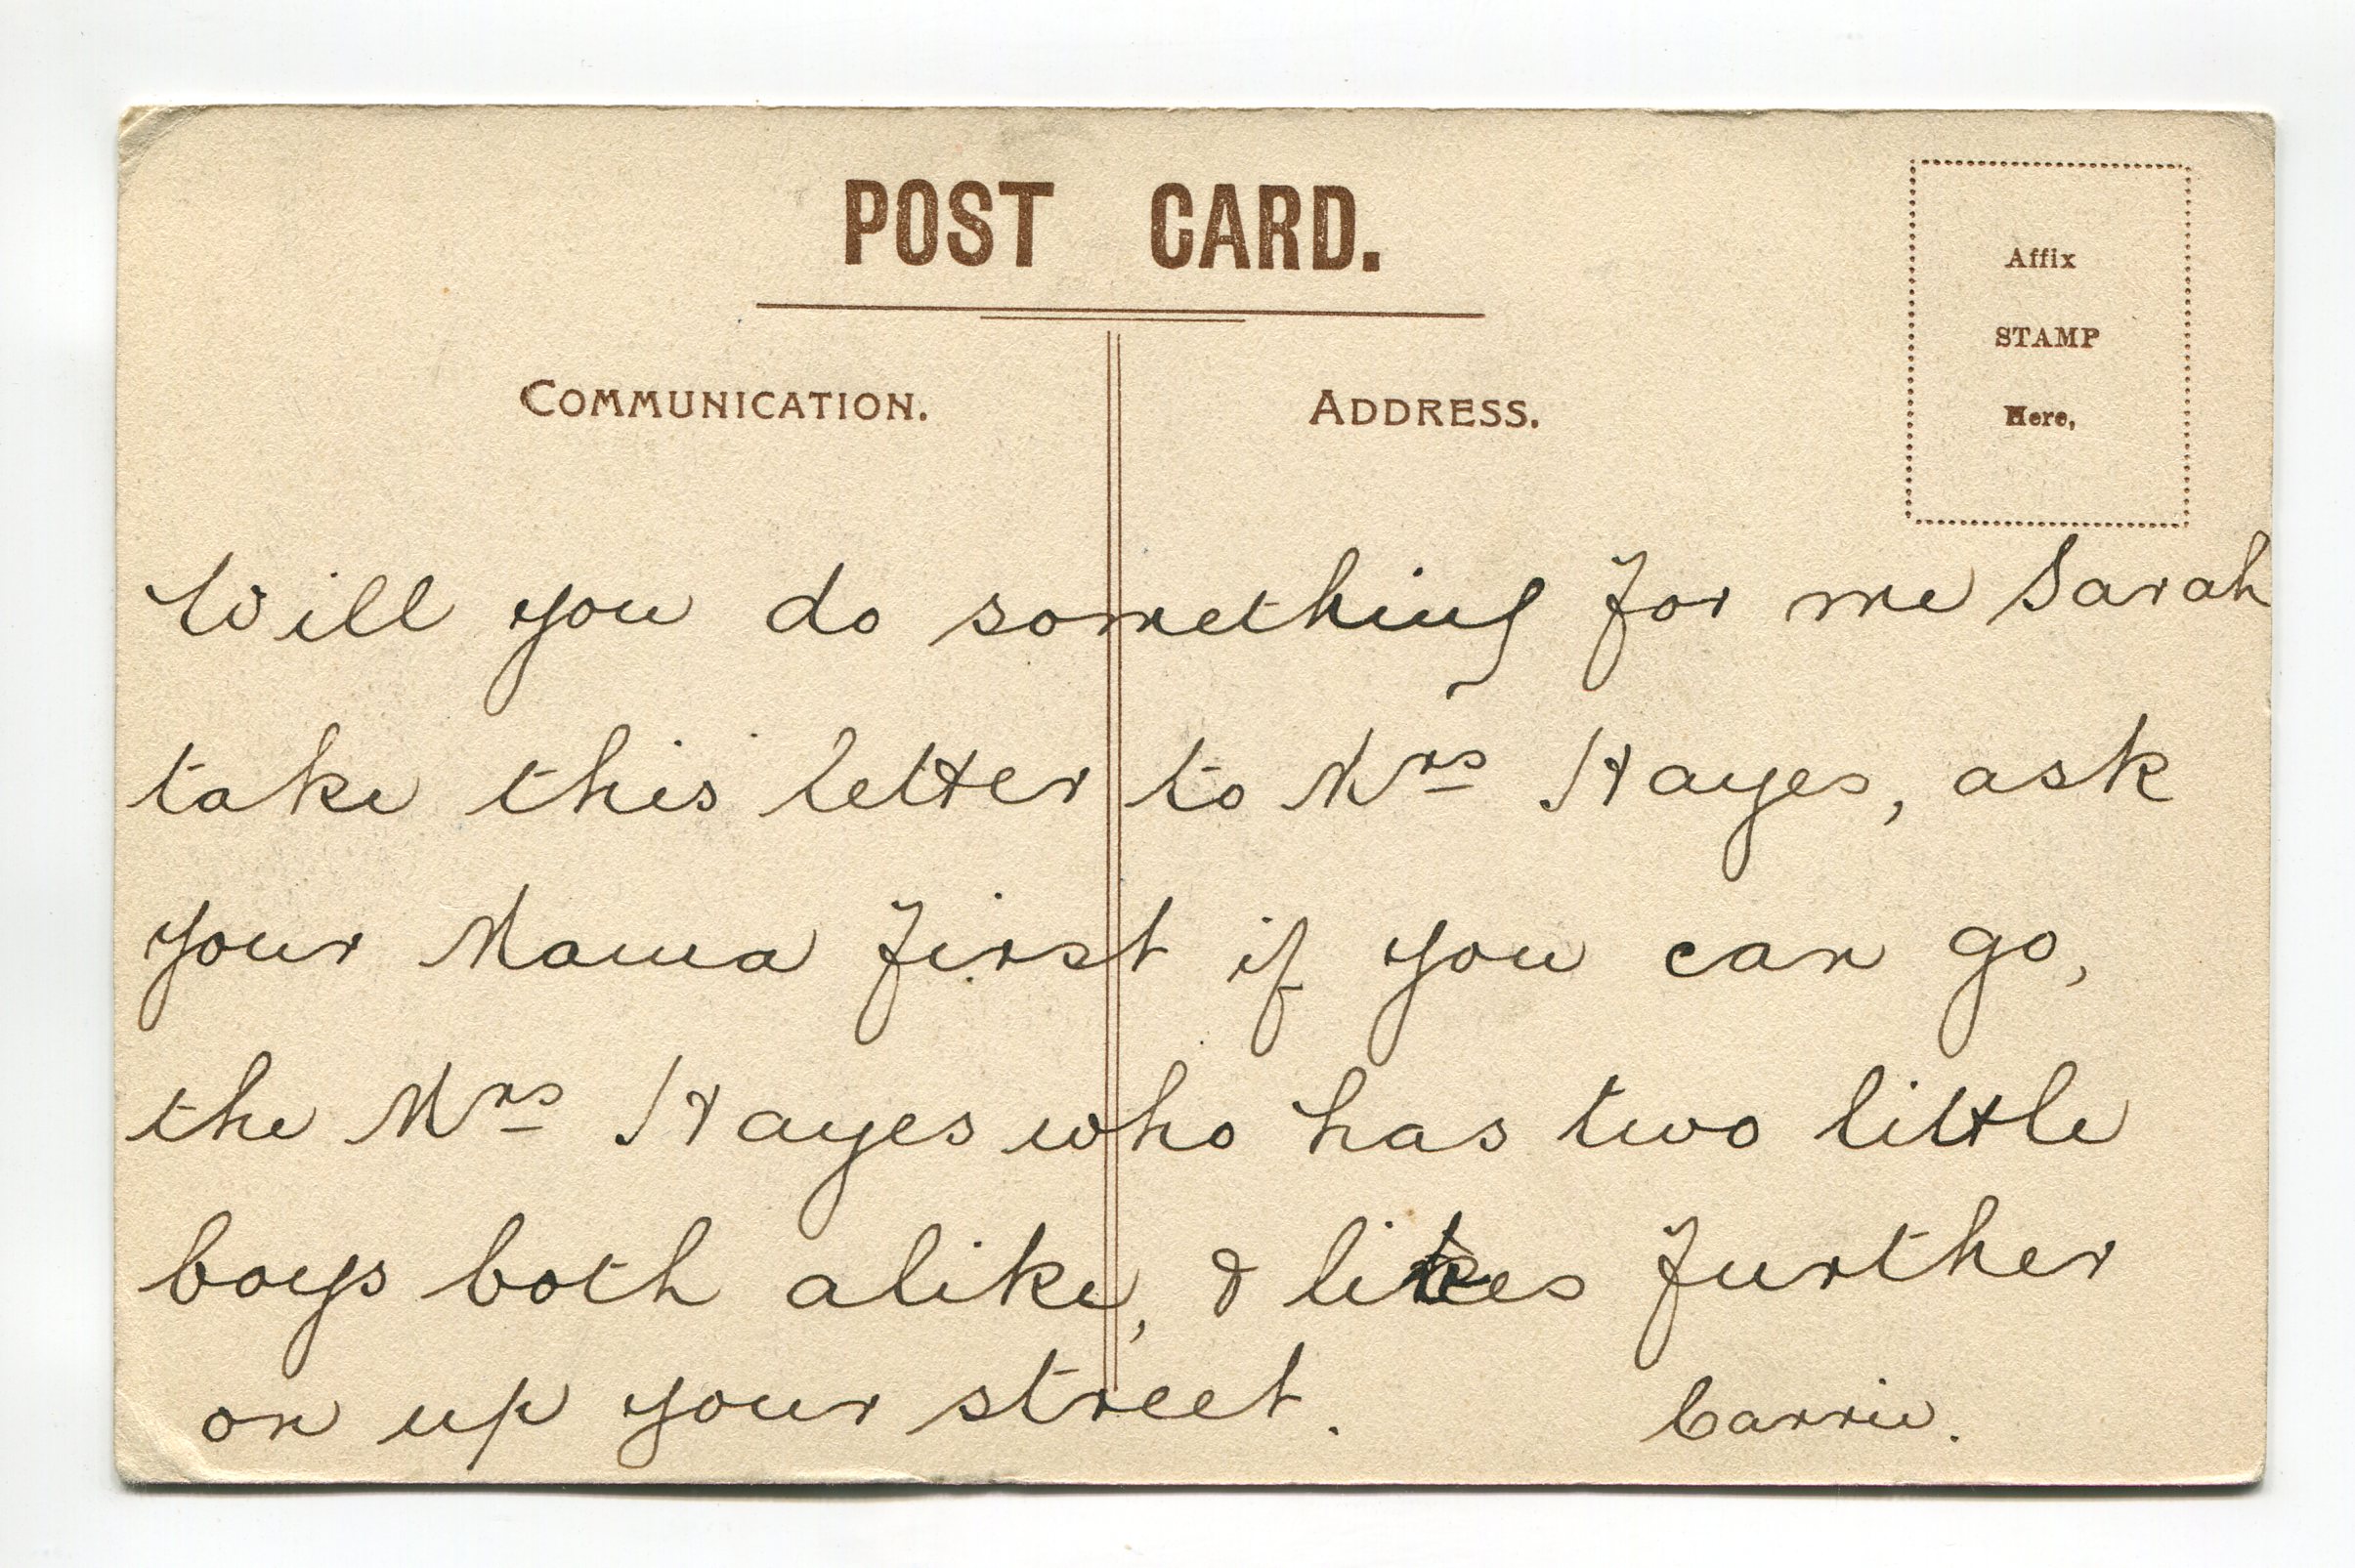 POST CARD.
COMMUNICATION.
ADDRESS.
Affix
STAMP
Here,
Will you do something for me Sarah
take this letter to Mrs Hayes, ask
your Mama first if you can go,
the Mrs Hayes who has two little
boys both alike, & likes further
on up your street.
Carrie.